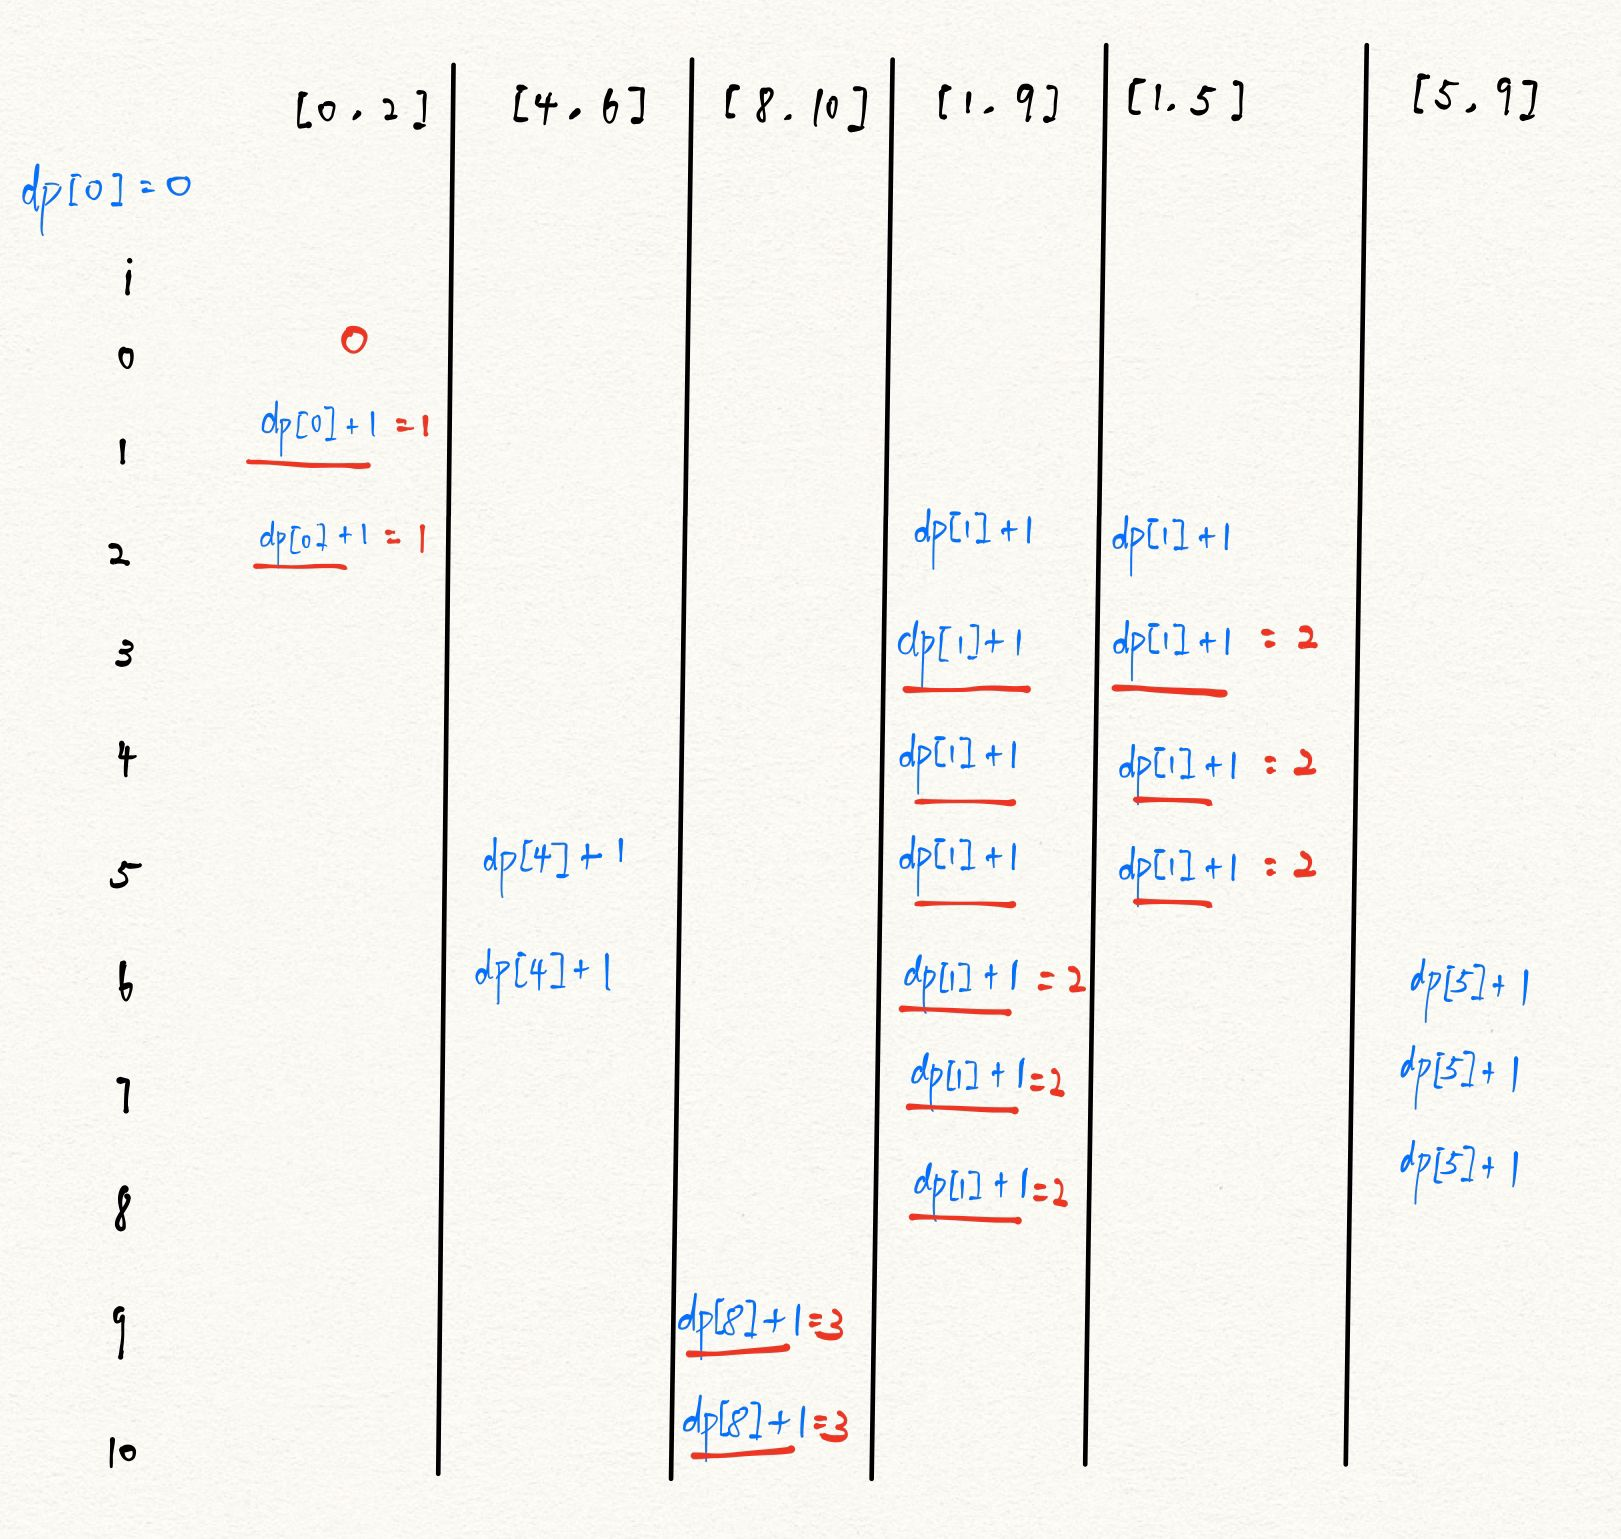 [0, 2] [4, 6] [8, 10] [1, 9] [1, 5] [5, 9]
dp[0] = 0
i
0 0
1 dp[0]+1 =1
2 dp[0]+1 =1 dp[1]+1 dp[1]+1
3 dp[1]+1 dp[1]+1 = 2
4 dp[1]+1 dp[1]+1 = 2
5 dp[4]+1 dp[1]+1 dp[1]+1 = 2
6 dp[4]+1 dp[1]+1 =2 dp[5]+1
7 dp[1]+1=2 dp[5]+1
8 dp[1]+1=2 dp[5]+1
9 dp[8]+1=3
10 dp[8]+1=3